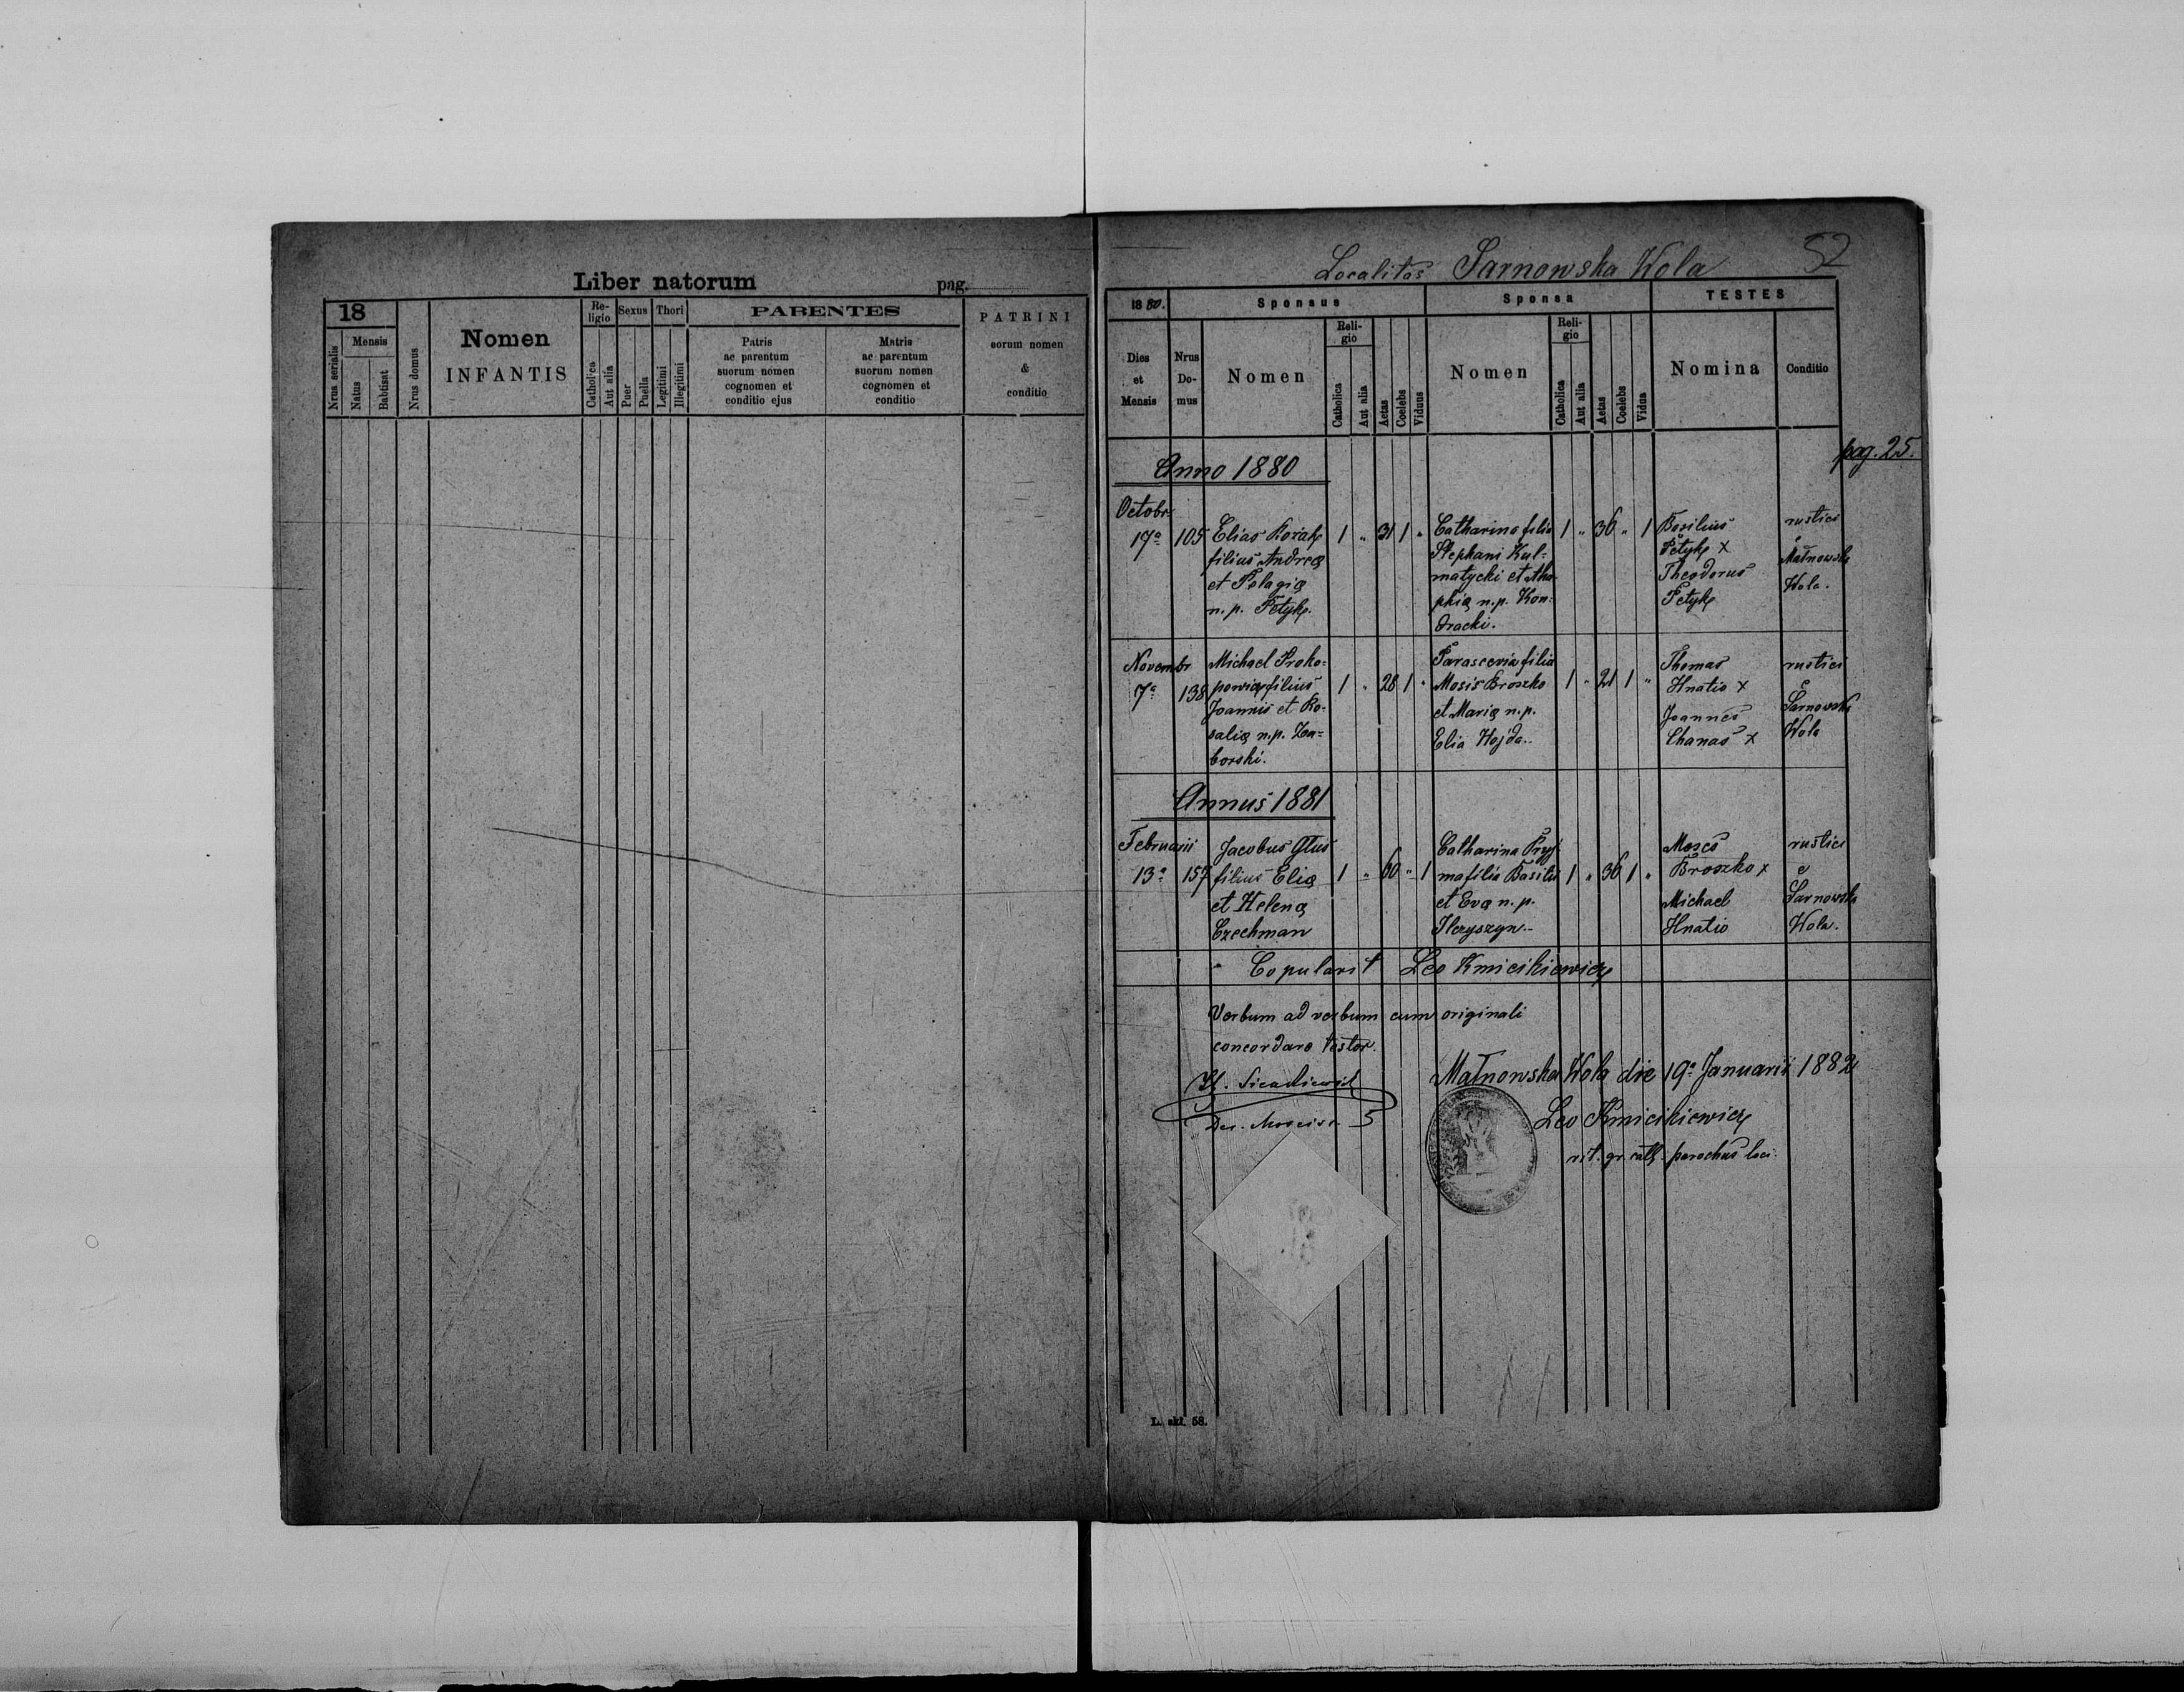 Liber natorum pag.
18
Nrus serialis
Mensis
Natus
Babtisat
Nrus domus
Nomen
INFANTIS
Re-
ligio
Catholica
Aut alia
Sexus
Puer
Puella
Thori
Legitimi
Illegitimi
PARENTES
Patris
ac parentum
suorum nomen
cognomen et
conditio ejus
Matris
ac parentum
suorum nomen
cognomen et
conditio
PATRINI
eorum nomen
&
conditio
52
Localitas Sarnowska Wola
1880.
Sponsus
Sponsa
TESTES
Dies
et
Mensis
Nrus
Do-
mus
Nomen
Reli-
gio
Catholica
Aut alia
Aetas
Coelebs
Viduus
Nomen
Reli-
gio
Catholica
Aut alia
Aetas
Coelebs
Vidua
Nomina
Conditio
pag. 25.
Anno 1880
Octobr.
17a 105
Elias Koriak
filius Andreæ
et Pelagiæ
n.p. Petyk.
1 " 31 1 "
Catharina filia
Stephani Kul-
matycki et Aha-
phiæ n.p. Kon-
dracki.
1 " 36 " 1
Basilius
Petyk x
Theodorus
Petyk
rustici
e
Małnowska
Wola.
Novembr
7a 138
Michael Proko-
powicz filius
Joannis et Ro-
saliæ n.p. Za-
borski.
1 " 28 1 "
Parascevia filia
Mosis Broszko
et Mariæ n.p.
Elia Hojda..
1 " 21 1 "
Thomas
Hnatio x
Joannes
Chanas x
rustici
e
Sarnowska
Wola
Annus 1881
Februarii
13a 157
Jacobus Glus
filius Eliæ
et Helenæ
Czechman
1 " 60 " 1
Catharina Pryj-
ma filia Basilii
et Evæ n.p.
Ilczyszyn..
1 " 36 1 "
Moses
Broszko x
Michael
Hnatio
rustici
e
Sarnowska
Wola.
Copulavit Leo Kmicikiewicz
Verbum ad verbum cum originali
concordare testor.
Małnowska Wola die 19a Januarii 1882
Leo Kmicikiewicz
rit. gr. cath. parochus loci.
L. skł. 58.